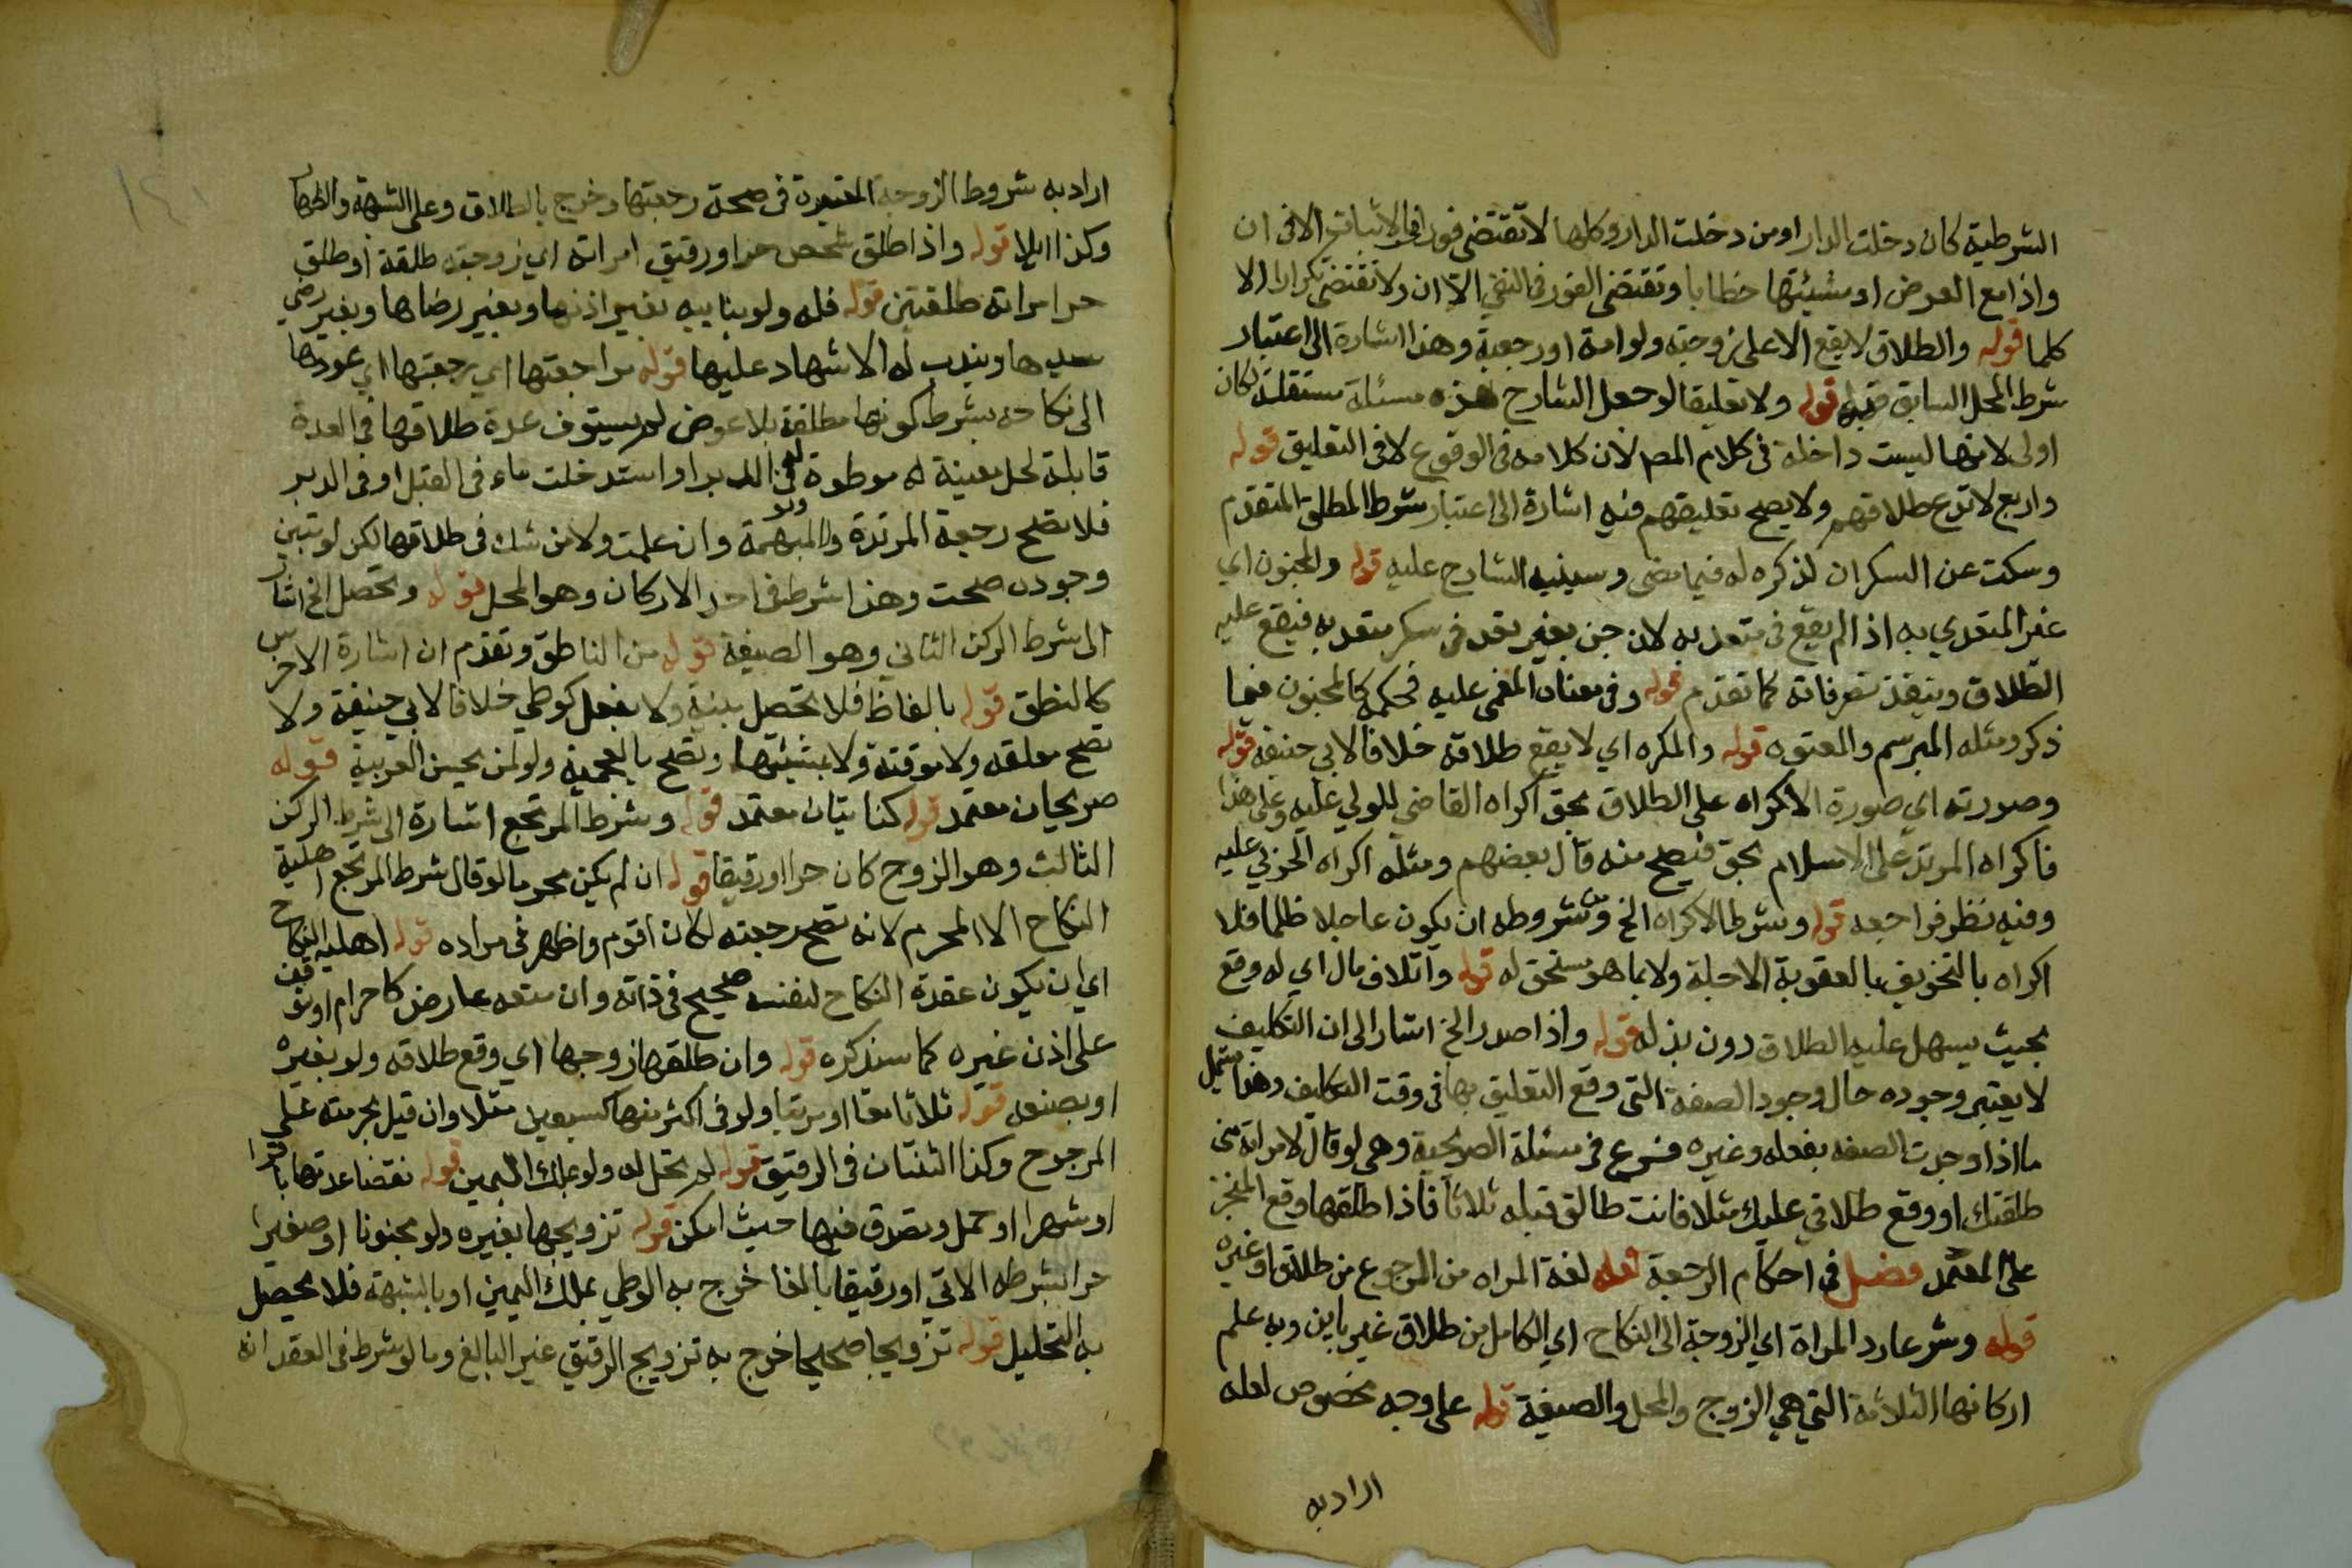 الشرطية كان دخلت الدار او من دخلت الدار وكلها لا تقتضي فورا في الاثبات الا في ان
واذا مع العوض او مشيئتها خطابا وتقتضي الفور في النفي الا ان ولا تقتضي تكرارا الا
كلما قوله والطلاق لا يقع الا على زوجته ولو امة او رجعية وهذا اشارة الى اعتبار
شرط المحل السابق قوله ولا تعليقا لو جعل الشارح هذه مسئلة مستقلة لكان
اولى لانها ليست داخلة في كلام المص لان كلامه في الوقوع لا في التعليق قوله
واربع لا تدع طلاقهم ولا يصح تعليقهم فيه اشارة الى اعتبار شرط المطلق المتقدم
وسكت عن السكران لذكره له فيما مضى وسينبه الشارح عليه قوله والمجنون اي
غير المتعدي به اذا لم يقع في متعد به لان جن بغير تعد في سكر متعد به فيقع عليه
الطلاق وينفذ تصرفاته كما تقدم قوله وفي معناه المغمى عليه فحكمه كالمجنون فيما
ذكر ومثله المبرسم والمعتوه قوله والمكره اي لا يقع طلاقه خلافا لابي حنيفه قوله
وصورته اي صورة الاكراه على الطلاق بحق اكراه القاضي للولي عليه وعلى هذا
فاكراه المرتد على الاسلام بحق فيصح منه قال بعضهم ومثله اكراه الحربي عليه
وفيه نظر فراجعه قوله وشرط الاكراه الخ ومن شروطه ان يكون عاجلا ظلما فلا
اكراه بالتخويف بالعقوبة الاجلة ولا بما هو مستحق له قوله واتلاف مال اي له وقع
بحيث يسهل عليه الطلاق دون بذله قوله واذا صدر الخ اشار الى ان التكليف
لا يعتبر وجوده حال وجود الصفة التي وقع التعليق بها في وقت التكليف وهذا يشمل
ما اذا وجدت الصفه بفعله وغيره فرع في مسئلة الصريحية وهي لو قال لامراته متى
طلقتك او وقع طلاقي عليك مثلا فانت طالق قبله ثلاثا فاذا طلقها وقع المنجز
على المعتمد فصل في احكام الرجعة قوله لغة المراه من الرجوع من طلاق او غيره
قوله وشرعا رد المراة اي الزوجة الى النكاح اي الكامل من طلاق غير باين وبه علم
اركانها الثلاثة التي هي الزوج والمحل والصيغة قوله على وجه مخصوص لعله
اراد به
اراد به شروط الزوجة المعتبرة في صحة رجعتها وخرج بالطلاق وعلى الشبهة والظهار
وكذا الايلا قوله واذا طلق شخص حر او رقيق امراته اي زوجته طلقة او طلق
حر امراته طلقتين قوله فله ولو بنائبه بغير اذنها وبغير رضاها وبغير رضي
سيدها ويندب له الاشهاد عليها قوله مراجعتها اي رجعتها اي عودها
الى نكاحه بشرط كونها مطلقة بلا عوض لم يستوف عدة طلاقها في العدة
قابلة لحل معينة له موطوة ولو في الدبر او استدخلت ماء في القبل او في الدبر
فلا تصح رجعة المرتدة ولا المبهمة وان علمت ولا من شك في طلاقها لكن لو تبين
وجوده صحت وهذا شرط في احد الاركان وهو المحل قوله وتحصل الخ اشار
الى شرط الركن الثاني وهو الصيغة قوله من الناطق وتقدم ان اشارة الاخرس
كالنطق قوله بالفاظ فلا تحصل بنية ولا بفعل كوطي خلافا لابي حنيفة ولا
تصح معلقه ولا موقتة ولا بمشيئتها وتصح بالعجمية ولو لمن يحسن العربية قوله
صريحان معتمد قوله كنايتان معتمد قوله وشرط المرتجع اشارة الى شرط الركن
الثالث وهو الزوج كان حرا او رقيقا قوله ان لم يكن محرما لو قال شرط المرتجع اهلية
النكاح الا المحرم لانه تصح رجعته لكان اقوم واظهر في مراده قوله اهلية النكاح
اي ان يكون عقدة النكاح لنفسه صحيح في ذاته وان منعه عارض كاحرام او توقف
على اذن غيره كما سنذكره قوله وان طلقها زوجها اي وقع طلاقه ولو بغيره
او بصنعه قوله ثلاثا معا او مرتبا ولو في اكثر منها كسبعين مثلا وان قيل بحرمته على
المرجوح وكذا الثنتان في الرقيق قوله لم تحل له ولو بملك اليمين قوله نقضا عدتها باقرا
او شهر او حمل وتصدق فيها حيث امكن قوله تزويجها بغيره ولو مجنونا او صغيرا
حرا بشرطه الاتي او رقيقا بالغا خرج به الوطي بملك اليمين او بالشبهة فلا يحصل
به التحليل قوله تزويجا صحيحا خرج به تزويج الرقيق غير البالغ وما لو شرط في العقد انه